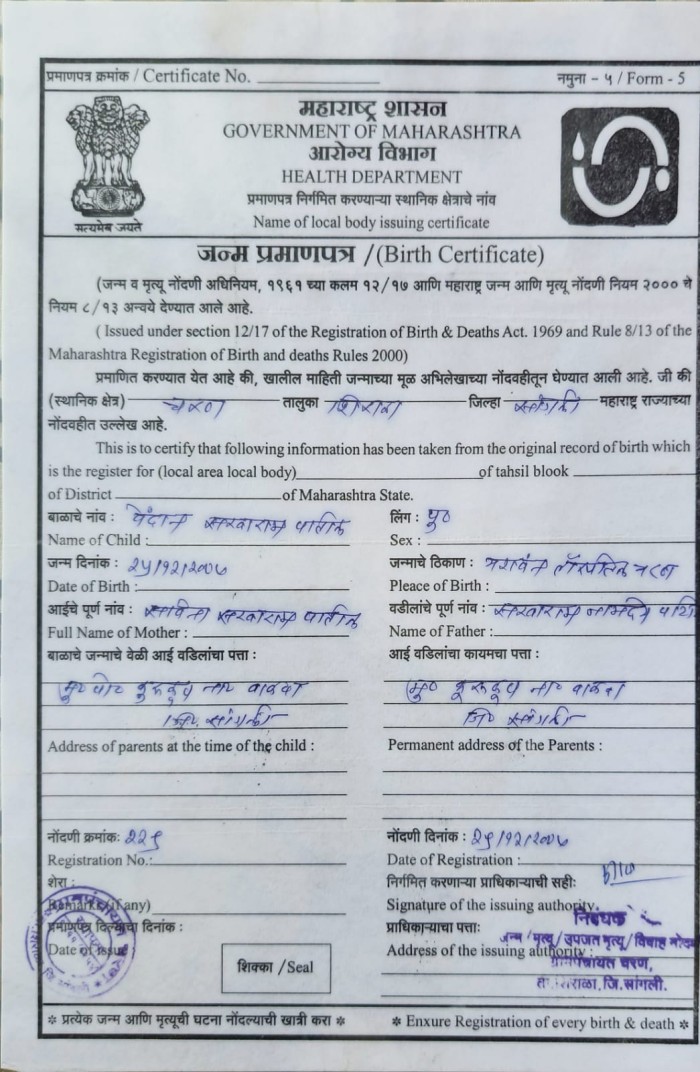 प्रमाणपत्र क्रमांक / Certificate No. नमुना - ५ / Form - 5
महाराष्ट्र शासन
GOVERNMENT OF MAHARASHTRA
आरोग्य विभाग
HEALTH DEPARTMENT
प्रमाणपत्र निर्गमित करणाऱ्या स्थानिक क्षेत्राचे नांव
Name of local body issuing certificate
सत्यमेव जयते
जन्म प्रमाणपत्र /(Birth Certificate)
(जन्म व मृत्यू नोंदणी अधिनियम, १९६१ च्या कलम १२/१७ आणि महाराष्ट्र जन्म आणि मृत्यू नोंदणी नियम २००० चे
नियम ८/१३ अन्वये देण्यात आले आहे.
( Issued under section 12/17 of the Registration of Birth & Deaths Act. 1969 and Rule 8/13 of the
Maharashtra Registration of Birth and deaths Rules 2000)
प्रमाणित करण्यात येत आहे की, खालील माहिती जन्माच्या मूळ अभिलेखाच्या नोंदवहीतून घेण्यात आली आहे. जी की
(स्थानिक क्षेत्र) चरण तालुका शिराळा जिल्हा सांगली महाराष्ट्र राज्याच्या
नोंदवहीत उल्लेख आहे.
This is to certify that following information has been taken from the original record of birth which
is the register for (local area local body) of tahsil blook
of District of Maharashtra State.
बाळाचे नांव : वेदांत सखाराम पाटील लिंग : पु०
Name of Child : Sex :
जन्म दिनांक : २५/१२/२००७ जन्माचे ठिकाण : यशवंत हॉस्पिटल चरण
Date of Birth : Pleace of Birth :
आईचे पूर्ण नांव : सविता सखाराम पाटील वडीलांचे पूर्ण नांव : सखाराम नामदेव
Full Name of Mother : Name of Father :
बाळाचे जन्माचे वेळी आई वडिलांचा पत्ता : आई वडिलांचा कायमचा पत्ता :
मु० पो० ता० वाळवा मु० ता० वाळवा
जि. सांगली जि० सांगली
Address of parents at the time of the child : Permanent address of the Parents :
नोंदणी क्रमांक: २२९ नोंदणी दिनांक : २९/१२/२००७
Registration No.: Date of Registration :
शेरा : निर्गमित करणाऱ्या प्राधिकाऱ्याची सही:
Remarks (if any) Signature of the issuing authority.
प्रमाणपत्र दिल्याचा दिनांक : प्राधिकाऱ्याचा पत्ता: निबंधक
Date of issue : Address of the issuing authority :
जन्म/मृत्यू/उपजत मृत्यू/विवाह नोंदणी
ग्रामपंचायत चरण,
ता. शिराळा, जि. सांगली.
शिक्का /Seal
* प्रत्येक जन्म आणि मृत्यूची घटना नोंदल्याची खात्री करा * * Enxure Registration of every birth & death *